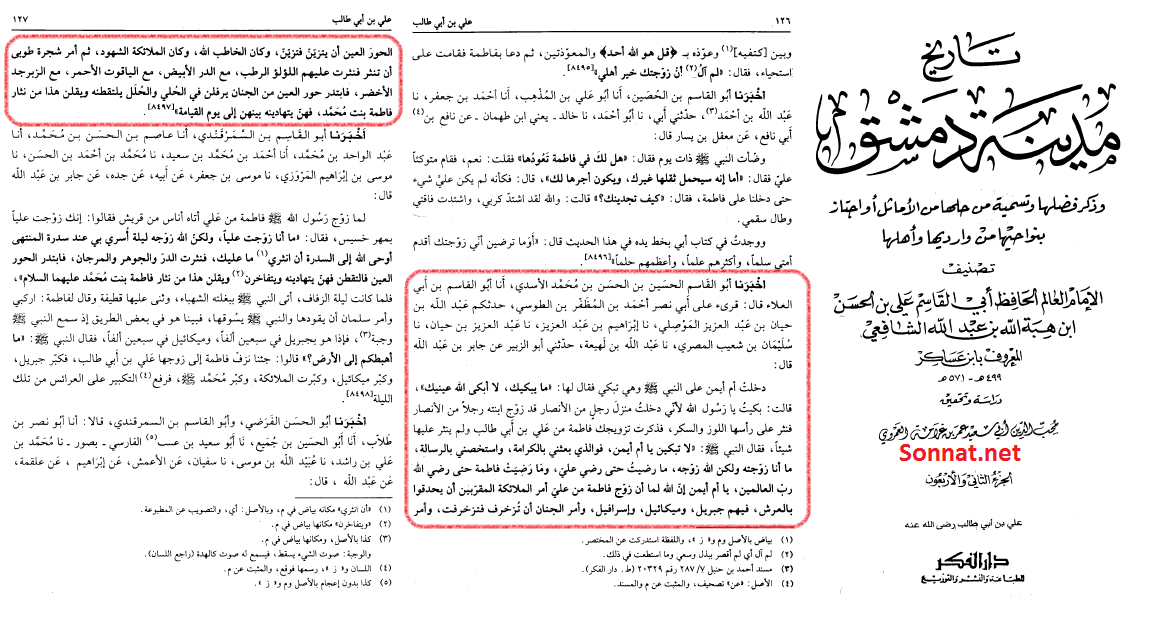 ١٢٦
علي بن أبي طالب
وبين [كتفيه](١) وعوّذه بـ ﴿قل هو الله أحد﴾ والمعوّذتين، ثم دعا بفاطمة فقامت على
استحياء، فقال: «لم آلُ(٢) أنْ زوّجتك خير أهلي»[٨٤٩٥].
أَخْبَرَنا أبو القاسم بن الحُصَين، أنَا أبو علي بن المُذْهِب، أنَا أحْمَد بن جعفر، نا
عَبْد اللّه بن أحْمَد(٣)، حدّثني أبي، نا أبو أحْمَد، نا خالد ـ يعني ابن طهمان ـ عن نافع بن(٤)
أبي نافع، عَن معقل بن يسار قال:
وضّأت النبي ﷺ ذات يوم فقال: «هل لكَ في فاطمة تَعُودُها» فقلت: نعم، فقام متوكئاً
عليّ فقال: «أما إنه سيحمل ثقلها غيرك، ويكون أجرها لك»، قال: فكأنه لم يكن عليّ شيء
حتى دخلنا على فاطمة، فقال: «كيف تجدينك؟» قالت: والله لقد اشتدّ كربي، واشتدت فاقتي
وطال سقمي.
ووجدتُ في كتاب أبي بخط يده في هذا الحديث قال: «أوَما ترضين أنّي زوّجتك أقدم
أمتي سلماً، وأكثرهم علماً، وأعظمهم حلماً»[٨٤٩٦].
أَخْبَرَنا أبُو القَاسم الحسَين بن الحسَن بن مُحمَّد الأسدي، أنَا أبو القاسم بن أبي
العلاء قال: قرىء على أبي نصر أحْمَد بن المُظَفّر بن الطوسي، حدثكم عَبْد اللّه بن
حيان بن عَبْد العزيز المَوْصِلي، نا إبْرَاهيم بن عَبْد العزيز، نا عَبْد العزيز بن حيان، نا
سُلَيْمَان بن شعيب المصري، نا عَبْد اللّه بن لَهيعة، حدّثني أبو الزبير عن جابر بن عَبْد اللّه
قال:
دخلتْ أم أيمن على النبي ﷺ وهي تبكي فقال لها: «ما يبكيك، لا أبكى الله عينيك»،
قالت: بكيتُ يا رَسُول اللّه لأنّي دخلتُ منزلَ رجلٍ من الأنصار قد زوّج ابنته رجلاً من الأنصار
فنثر على رأسها اللوز والسكر، فذكرت تزويجك فاطمة من عَلي بن أبي طالب ولم ينثر عليها
شيئاً، فقال النبي ﷺ: «لا تبكين يا أم أيمن، فوالذي بعثني بالكرامة، واستخصني بالرسالة،
ما أنا زوجته ولكن الله زوّجه، ما رضيتُ حتى رضي علي، ومَا رَضِيَتْ فاطمة حتى رضي الله
ربّ العالمين، يا أم أيمن إنّ الله لما أن زوّج فاطمة من عليّ أمر الملائكة المقرّبين أن يحدقوا
بالعرش، فيهم جبريل، وميكائيل، وإسرافيل، وأمر الجنان أن تُزخرف فتزخرفت، وأمر
(١) بياض بالأصل وم و« ز »، واللفظة استدركت عن المختصر.
(٢) لم آل أي لم أقصر ببذل وسعي وما استطعت في ذلك.
(٣) مسند أحمد بن حنبل ٢٨٧/٧ رقم ٢٠٣٢٩ (ط. دار الفكر).
(٤) الأصل: «عن» تصحيف، والمثبت عن م والمسند.
علي بن أبي طالب
١٢٧
الحورَ العين أن يتزيّنّ فتزيّنّ، وكان الخاطب الله، وكان الملائكة الشهود، ثم أمر شجرة طوبى
أن تنثر فنثرت عليهم اللؤلؤ الرطب، مع الدر الأبيض، مع الياقوت الأحمر، مع الزبرجد
الأخضر، فابتدر حور العين من الجنان يرفلن في الحُلي والحُلَل يلتقطنه ويقلن هذا من نثار
فاطمة بنت مُحَمَّد، فهنّ يتهادينه بينهن إلى يوم القيامة»[٨٤٩٧].
أَخْبَرَنا أبو القَاسم بن السَّمَرْقَندي، أنا عاصم بن الحسَن بن مُحَمَّد، أنا
عَبْد الواحد بن مُحَمَّد، أَنا أحْمَد بن مُحَمَّد بن سعيد، نا مُحَمَّد بن أحْمَد بن الحسَن، نا
موسى بن إبْرَاهيم المَرْوَزي، نا موسى بن جعفر، عَن أَبيه، عن جده، عَن جابر بن عَبْد اللّه
قال:
لما زوّج رَسُول اللّه ﷺ فاطمة من عَلي أتاه أناس من قريش فقالوا: إنك زوّجت علياً
بمهر خسيس، فقال: «ما أنا زوّجت علياً، ولكنّ الله زوجه ليلة أُسري بي عند سدرة المنتهى
أوحى الله إلى السدرة أن انثري(١) ما عليك، فنثرت الدرّ والجوهر والمرجان، فابتدر الحور
العين فالتقطن فهنّ يتهادينه ويتفاخرن(٢) ويقلن هذا من نثار فاطمة بنت مُحَمَّد عليهما السلام»،
فلما كانت ليلة الزفاف، أتى النبي ﷺ ببغلته الشهباء، وثنى عليها قطيفة وقال لفاطمة: اركبي
وأمر سلمان أن يقودها والنبي ﷺ يسُوقها، فبينا هو في بعض الطريق إذ سمع النبي ﷺ
وجبة(٣)، فإذا هو بجبريل في سبعين ألفاً، وميكائيل في سبعين ألفاً، فقال النبي ﷺ: «ما
أهبطكم إلى الأرض؟» قالوا: جئنا نزفّ فاطمة إلى زوجها علي بن أبي طالب، فكبّر جبريل،
وكبّر ميكائيل، وكبّرت الملائكة، وكبّر مُحَمَّد ﷺ، فرفع(٤) التكبير على العرائس من تلك
الليلة[٨٤٩٨].
أَخْبَرَنا أبو الحسَن الفَرَضي، وأبُو القاسم بن السمرقندي، قالا: أنا أبُو نصر بن
طَلاّب، أنَا أبُو الحسَين بن جُمَيع، نَا أبُو سعيد بن عسب(٥) الفارسي ـ بصور ـ نا مُحَمَّد بن
عَلي بن راشد، نا عُبَيْد اللّه بن موسى، نا سفيان، عن الأعمش، عَن إبْرَاهيم ، عَن علقمة،
عَن عَبْد اللّه ، قال :
(١) «أن انثري» مكانها بياض في م، وبالأصل: أي، والتصويب عن المطبوعة.
(٢) «ويتفاخرن» مكانها بياض في م.
(٣) كذا بالأصل، ومكانها بياض في م.
والوجبة: صوت الشيء يسقط، فيسمع له صوت كالهدة (راجع اللسان).
(٤) اللسان و« ز »، رسمها فوقع، والمثبت عن م.
(٥) كذا بدون إعجام بالأصل وم و« ز ».
تاريخ
مدينة دمشق
وذكر فضلها وتسمية من حلها من الأماثل أو اجتاز
بنواحيها من وارديها وأهلها
تصنيف
الإمام العالم الحافظ أبي القاسم علي بن الحسن
ابن هبة الله بن عبد الله الشافعي
المعروف بابن عساكر
٤٩٩هـ ـ ٥٧١هـ
دراسة وتحقيق
محب الدين أبي سعيد عمر بن غرامة العمروي
Sonnat.net
الجزء الثاني والأربعون
علي بن أبي طالب رضى الله عنه
دار الفكر
للطباعة والنشر والتوزيع